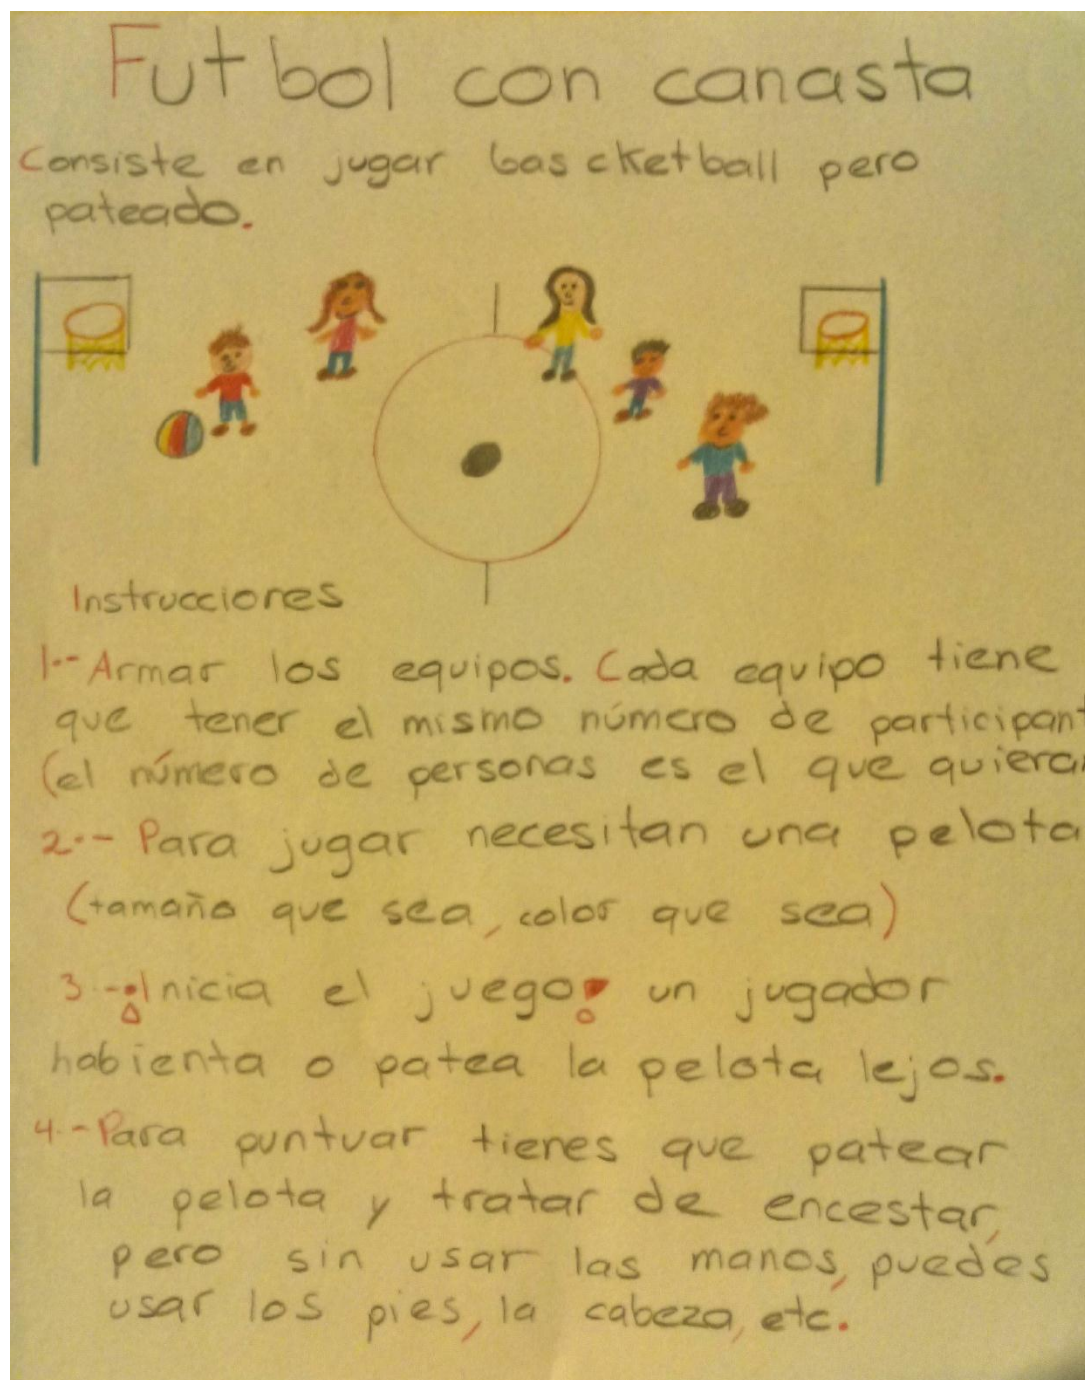 Futbol con canasta
Consiste en jugar bascketball pero
pateado.
Instrucciones
1.-Armar los equipos. Cada equipo tiene
que tener el mismo número de participant
(el número de personas es el que quieran
2.- Para jugar necesitan una pelota
(tamaño que sea, color que sea)
3.-¡Inicia el juego! un jugador
habienta o patea la pelota lejos.
4.-Para puntuar tienes que patear
la pelota y tratar de encestar,
pero sin usar las manos, puedes
usar los pies, la cabeza, etc.